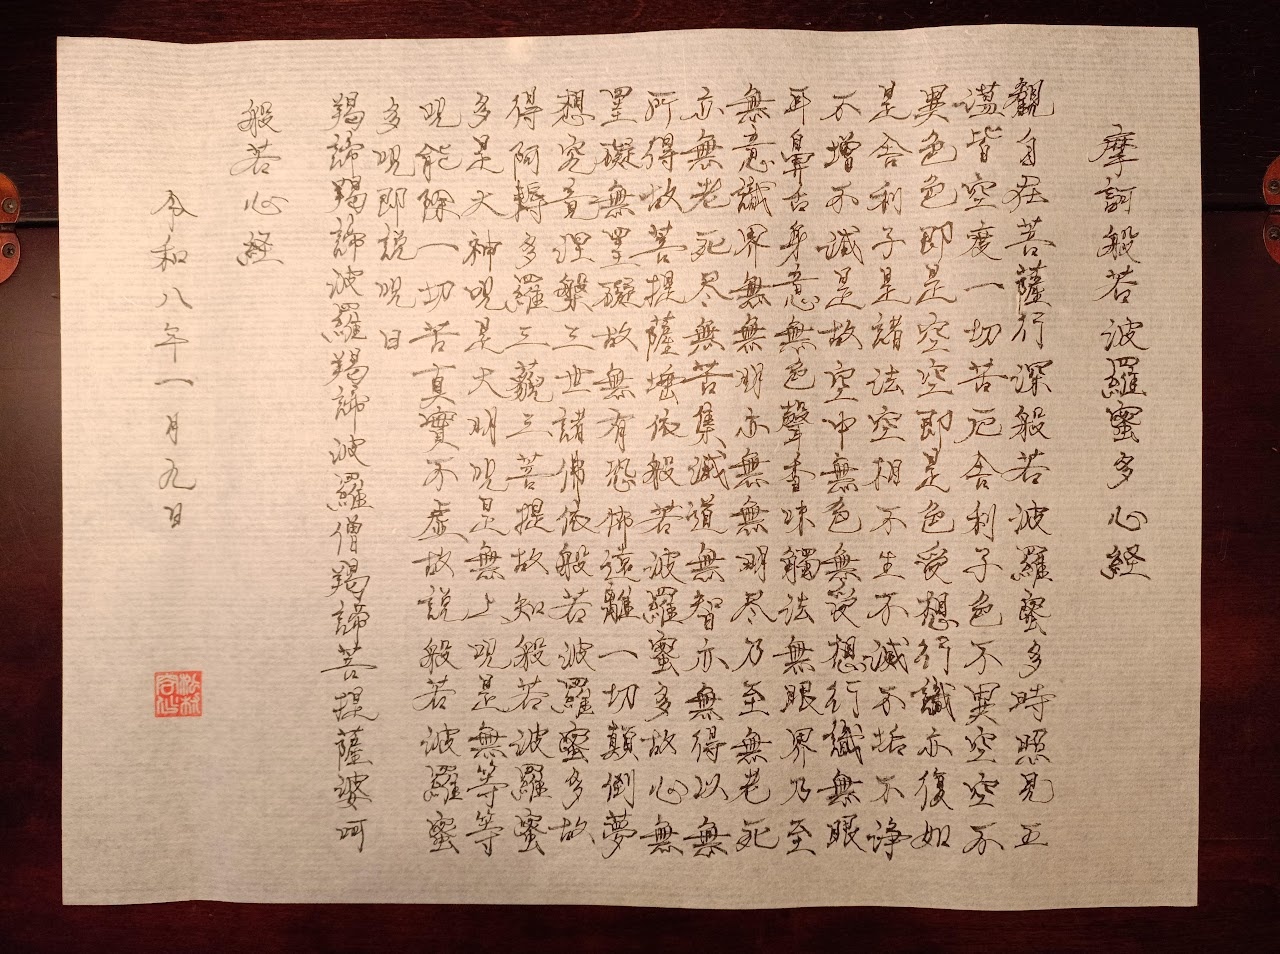 摩訶般若波羅蜜多心経
觀自在菩薩行深般若波羅蜜多時照見五
蘊皆空度一切苦厄舎利子色不異空空不
異色色即是空空即是色受想行識亦復如
是舎利子是諸法空相不生不滅不垢不浄
不増不減是故空中無色無受想行識無眼
耳鼻舌身意無色聲香味觸法無眼界乃至
無意識界無無明亦無無明尽乃至無老死
亦無老死尽無苦集滅道無智亦無得以無
所得故菩提薩埵依般若波羅蜜多故心無
罣礙無罣礙故無有恐怖遠離一切顛倒夢
想究竟涅槃三世諸佛依般若波羅蜜多故
得阿耨多羅三藐三菩提故知般若波羅蜜
多是大神呪是大明呪是無上呪是無等等
呪能除一切苦真實不虚故説般若波羅蜜
多呪即説呪曰
羯諦羯諦波羅羯諦波羅僧羯諦菩提薩婆呵
般若心経
令和八年一月九日